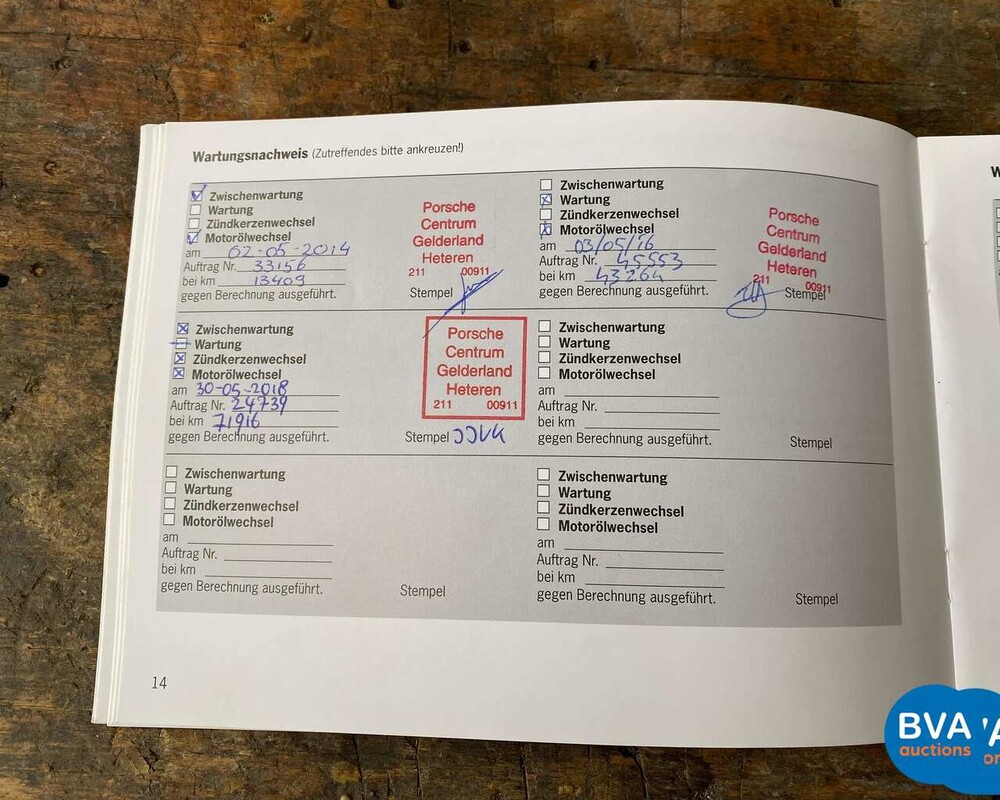 Wartungsnachweis (Zutreffendes bitte ankreuzen!)
Zwischenwartung
Wartung
Zündkerzenwechsel
Motorölwechsel
am 02-05-2014
Auftrag Nr. 33156
bei km 13409
gegen Berechnung ausgeführt.
Stempel
Porsche
Centrum
Gelderland
Heteren
211 00911
Zwischenwartung
Wartung
Zündkerzenwechsel
Motorölwechsel
am 03/05/16
Auftrag Nr. 45553
bei km 43264
gegen Berechnung ausgeführt.
Stempel
Porsche
Centrum
Gelderland
Heteren
211 00911
Zwischenwartung
Wartung
Zündkerzenwechsel
Motorölwechsel
am 30-05-2018
Auftrag Nr. 24739
bei km 71916
gegen Berechnung ausgeführt.
Stempel
Porsche
Centrum
Gelderland
Heteren
211 00911
Zwischenwartung
Wartung
Zündkerzenwechsel
Motorölwechsel
am
Auftrag Nr.
bei km
gegen Berechnung ausgeführt.
Stempel
Zwischenwartung
Wartung
Zündkerzenwechsel
Motorölwechsel
am
Auftrag Nr.
bei km
gegen Berechnung ausgeführt.
Stempel
Zwischenwartung
Wartung
Zündkerzenwechsel
Motorölwechsel
am
Auftrag Nr.
bei km
gegen Berechnung ausgeführt.
Stempel
14
BVA
auctions